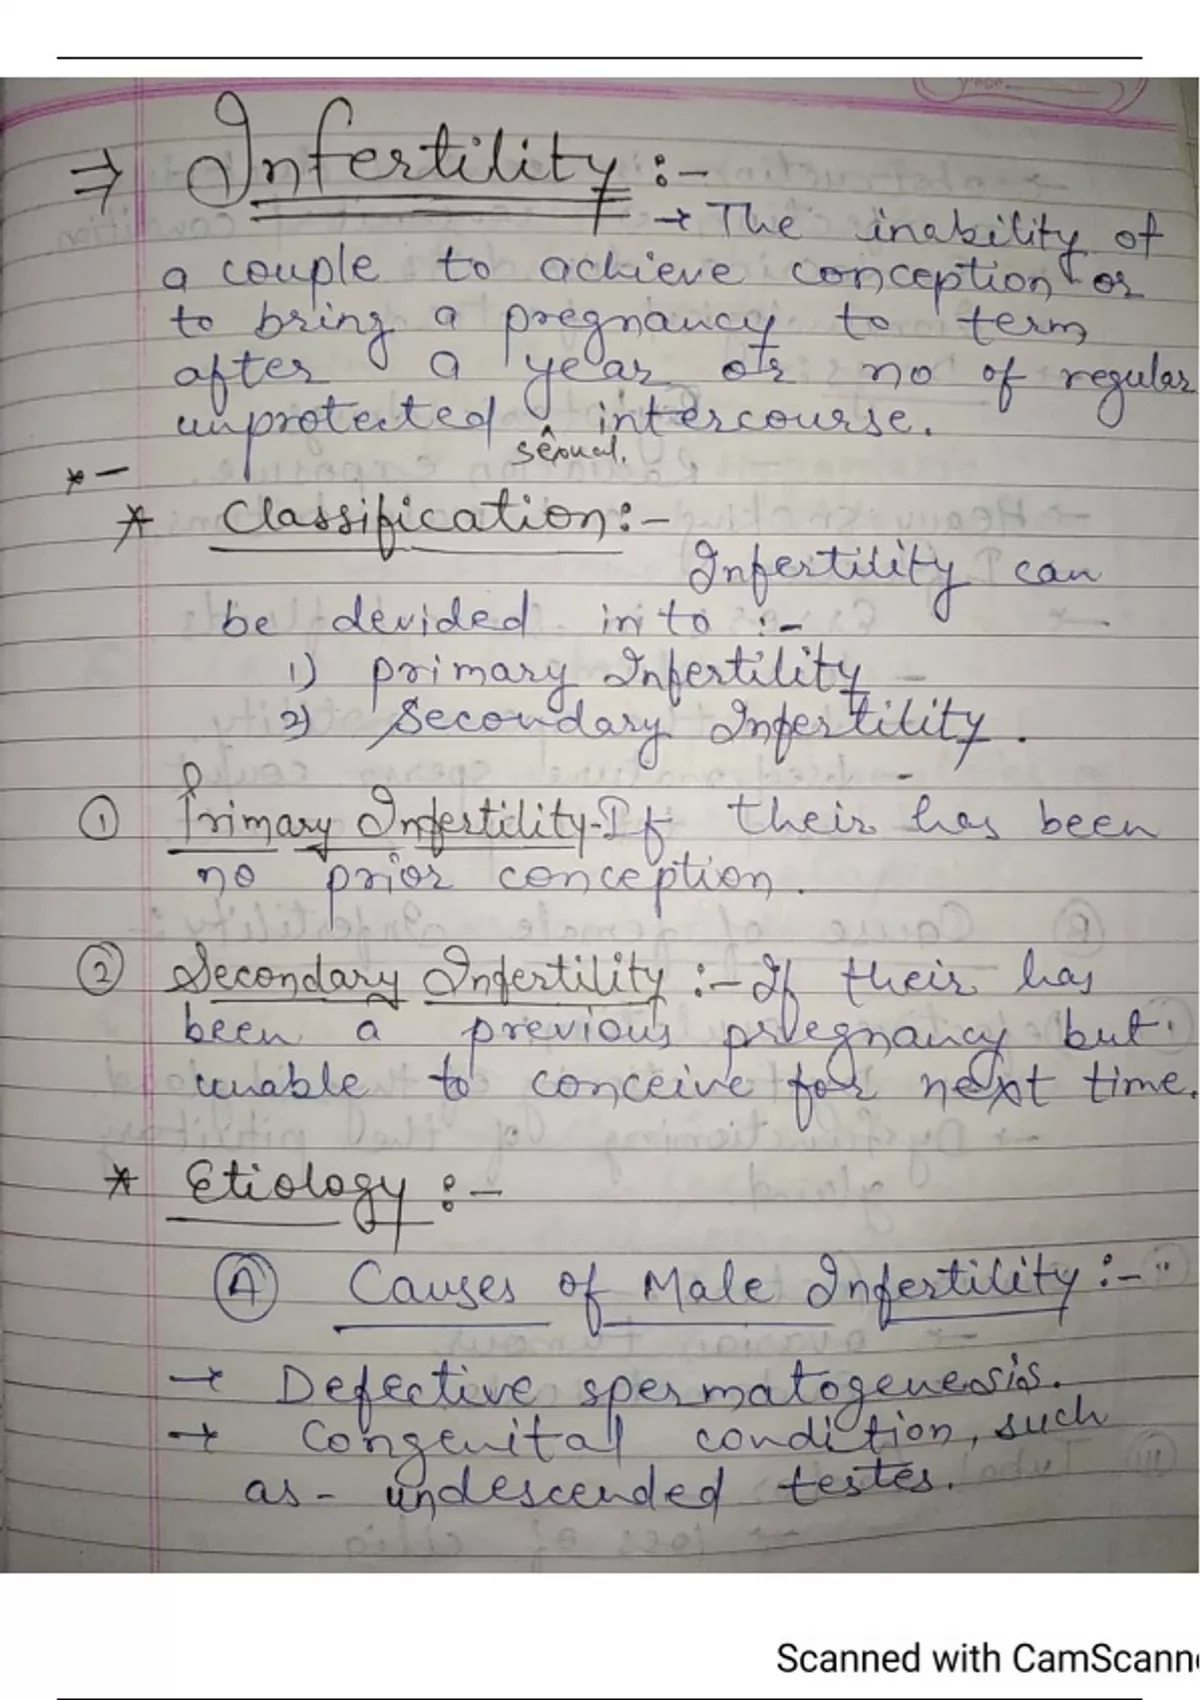 ⇒ Infertility :-
→ The inability of
a couple to achieve conception or
to bring a pregnancy to term
after a year or no of regular
unprotected ^ intercourse.
sexual.
* -
* Classification :-
Infertility can
be devided into :-
1) primary Infertility -
2) Secondary Infertility.
① Primary Infertility - If their has been
no prior conception.
② Secondary Infertility :- If their has
been a previous pregnancy but
unable to conceive for next time.
* Etiology :-
Ⓐ Causes of Male Infertility :-
→ Defective spermatogenesis.
→ Congenital condition, such
as - undescended testes.
Scanned with CamScann